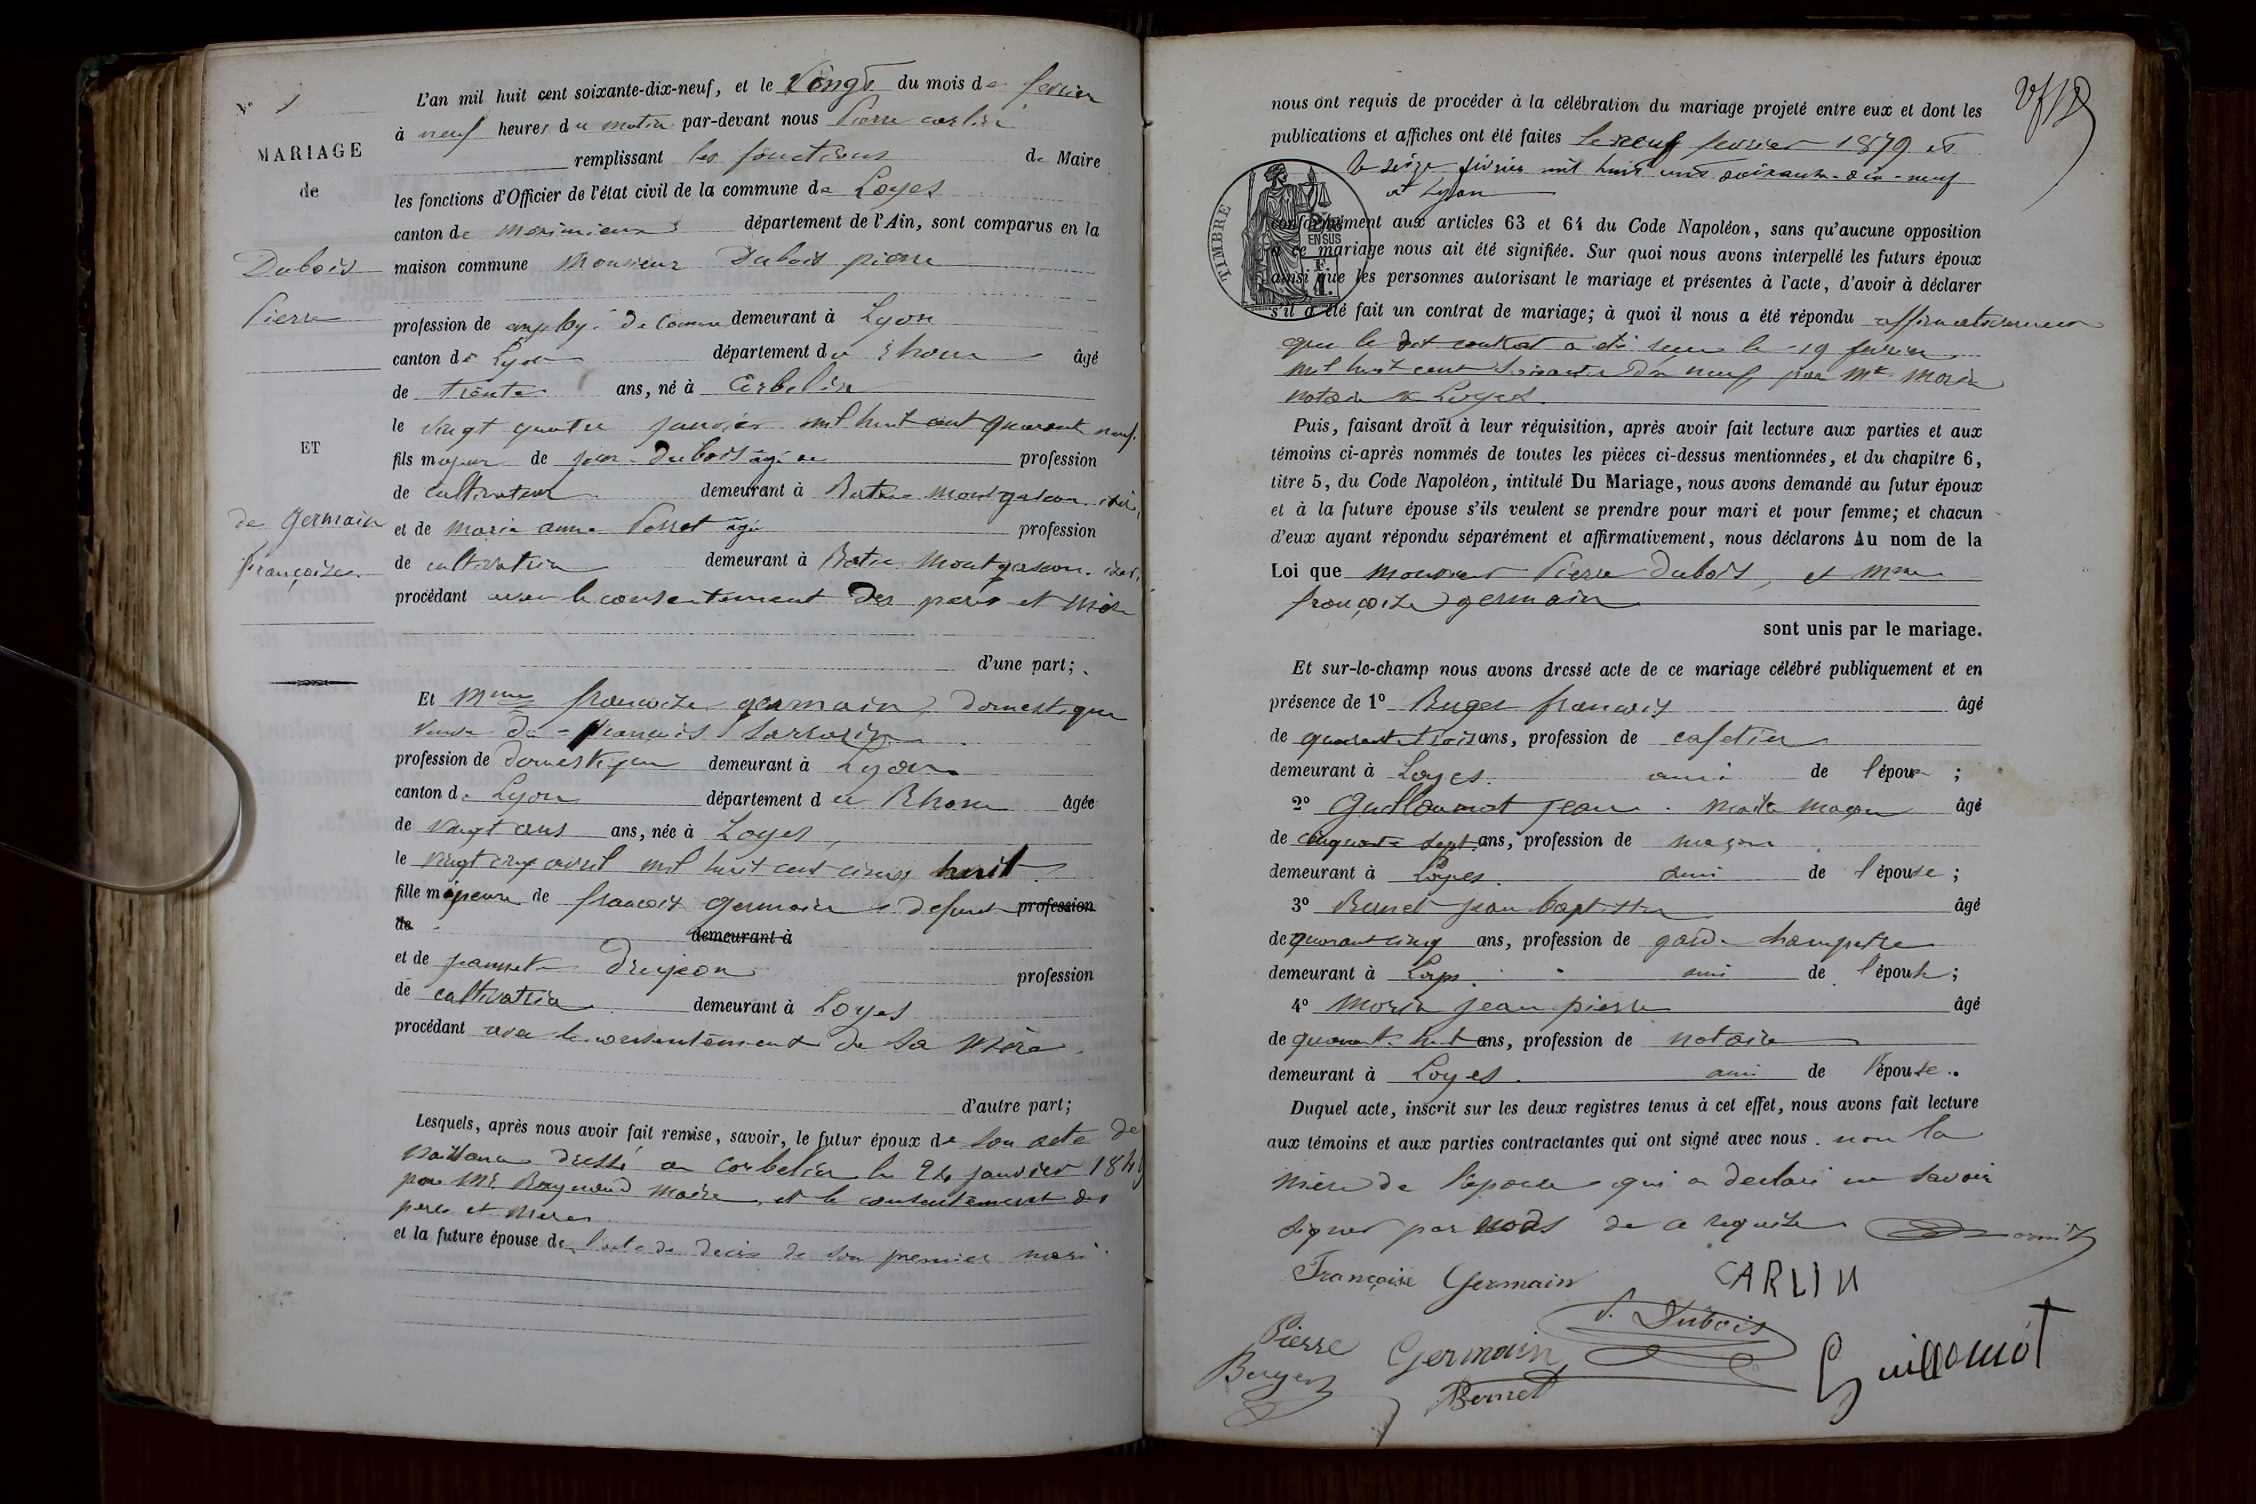 N° 1
MARIAGE
de
Dubois
Pierre
ET
de Germain
françoize
L'an mil huit cent soixante-dix-neuf, et le Vingt du mois de fevrier
à neuf heures du matin par-devant nous Pierre carlin
remplissant les fonctions de Maire
les fonctions d'Officier de l'état civil de la commune de Loyes
canton de meximieux département de l'Ain, sont comparus en la
maison commune Monsieur Dubois pierre
profession de employé de Comme demeurant à Lyon
canton de Lyon département du Rhone âgé
de trente ans, né à Corbelin
le vingt quatre janvier mil huit cent quarante neuf.
fils majeur de Dubois âgé de profession
de cultivateur demeurant à Batie Montgascon isère,
et de marie anne Perrot âgé profession
de cultivatrice demeurant à Batie Montgascon. isère,
procédant avec le consentement des peres et mère
d'une part;
Et Mme francoize germain, domestique
veuve de francois
profession de domestique demeurant à Lyon
canton de Lyon département du Rhone âgée
de vingt ans ans, née à Loyes,
le vingt cinq avril mil huit cent cinq huit
fille majeure de francois germain defunt profession
de demeurant à
et de jeannette Drujeon profession
de cultivatrice demeurant à Loyes
procédant avec le consentement de sa Mère
d'autre part;
Lesquels, après nous avoir fait remise, savoir, le futur époux de son acte de
naissance dressé a Corbelin le 24 janvier 1849
par Mr Raymond Maire, et le consentement des
peres et Meres
et la future épouse de l'acte de decis de son premier mari
nous ont requis de procéder à la célébration du mariage projeté entre eux et dont les
publications et affiches ont été faites le neuf fevrier 1879 et
le seize février mil huit cent soixante-dix-neuf
à Lyon
TIMBRE
EN SUS
conformément aux articles 63 et 64 du Code Napoléon, sans qu'aucune opposition
à ce mariage nous ait été signifiée. Sur quoi nous avons interpellé les futurs époux
ainsi que les personnes autorisant le mariage et présentes à l'acte, d'avoir à déclarer
s'il a été fait un contrat de mariage; à quoi il nous a été répondu affirmativement
que le dit contrat a été recu le 19 fevrier
mil huit cent soixante dix neuf par Me Morin
notaire à Loyes.
Puis, faisant droit à leur réquisition, après avoir fait lecture aux parties et aux
témoins ci-après nommés de toutes les pièces ci-dessus mentionnées, et du chapitre 6,
titre 5, du Code Napoléon, intitulé Du Mariage, nous avons demandé au futur époux
et à la future épouse s'ils veulent se prendre pour mari et pour femme; et chacun
d'eux ayant répondu séparément et affirmativement, nous déclarons Au nom de la
Loi que monsieur Pierre Dubois, et Mme
françoize germain
sont unis par le mariage.
Et sur-le-champ nous avons dressé acte de ce mariage célébré publiquement et en
présence de 1° Buger francois âgé
de quarante trois ans, profession de cafetier
demeurant à Loyes. ami de l'époux;
2° Guillaumot jean. Maitre maçon âgé
de cinquante sept ans, profession de maçon
demeurant à Loyes. ami de l'épouse;
3° Bernet jean baptiste âgé
de quarante cinq ans, profession de garde champetre
demeurant à Loyes. ami de l'épouse;
4° Morin jean pierre âgé
de quarante huit ans, profession de notaire
demeurant à Loyes. ami de l'épouse.
Duquel acte, inscrit sur les deux registres tenus à cet effet, nous avons fait lecture
aux témoins et aux parties contractantes qui ont signé avec nous. non la
mère de l'epouse qui a declaré ne savoir
signer par nous de ce requise
Françoise Germain
CARLIN
P. Dubois
Pierre Germain
Guillomot
Buger
Bernet